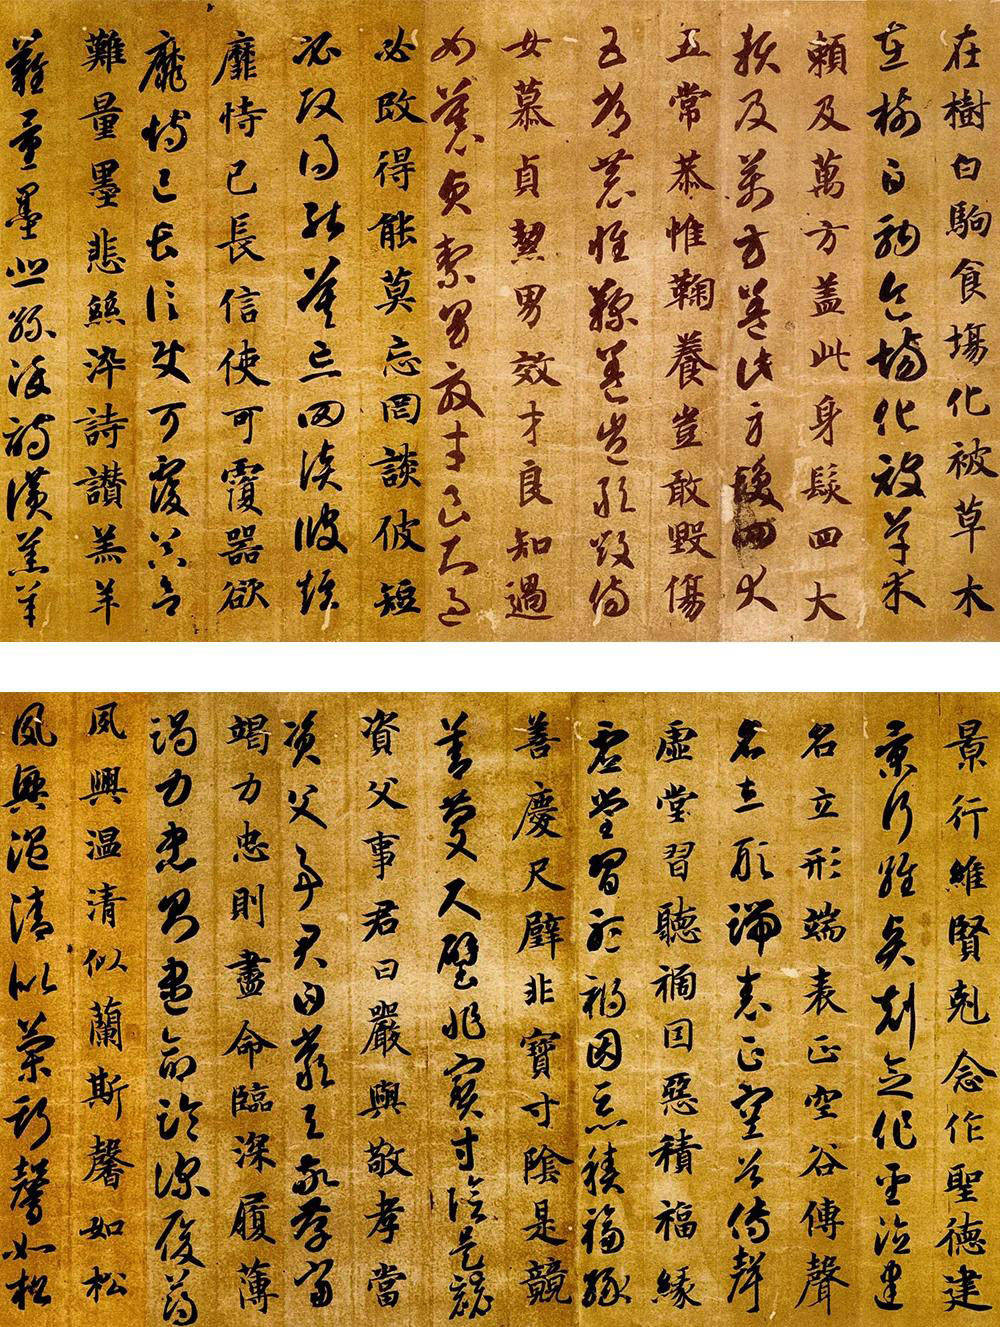 在樹白駒食塲化被草木
在樹白駒食塲化被草木
賴及萬方蓋此身髮四大
賴及萬方蓋此身髮四大
五常恭惟鞠養豈敢毀傷
五常恭惟鞠養豈敢毀傷
女慕貞絜男效才良知過
女慕貞絜男效才良知過
必改得能莫忘罔談彼短
必改得能莫忘罔談彼短
靡恃己長信使可覆器欲
靡恃己長信使可覆器欲
難量墨悲絲淬詩讚羔羊
難量墨悲絲淬詩讚羔羊
景行維賢剋念作聖德建
景行維賢剋念作聖德建
名立形端表正空谷傳聲
名立形端表正空谷傳聲
虛堂習聽禍因惡積福緣
虛堂習聽禍因惡積福緣
善慶尺璧非寶寸陰是競
善慶尺璧非寶寸陰是競
資父事君曰嚴與敬孝當
資父事君曰嚴與敬孝當
竭力忠則盡命臨深履薄
竭力忠則盡命臨深履薄
夙興温清似蘭斯馨如松
夙興温清似蘭斯馨如松